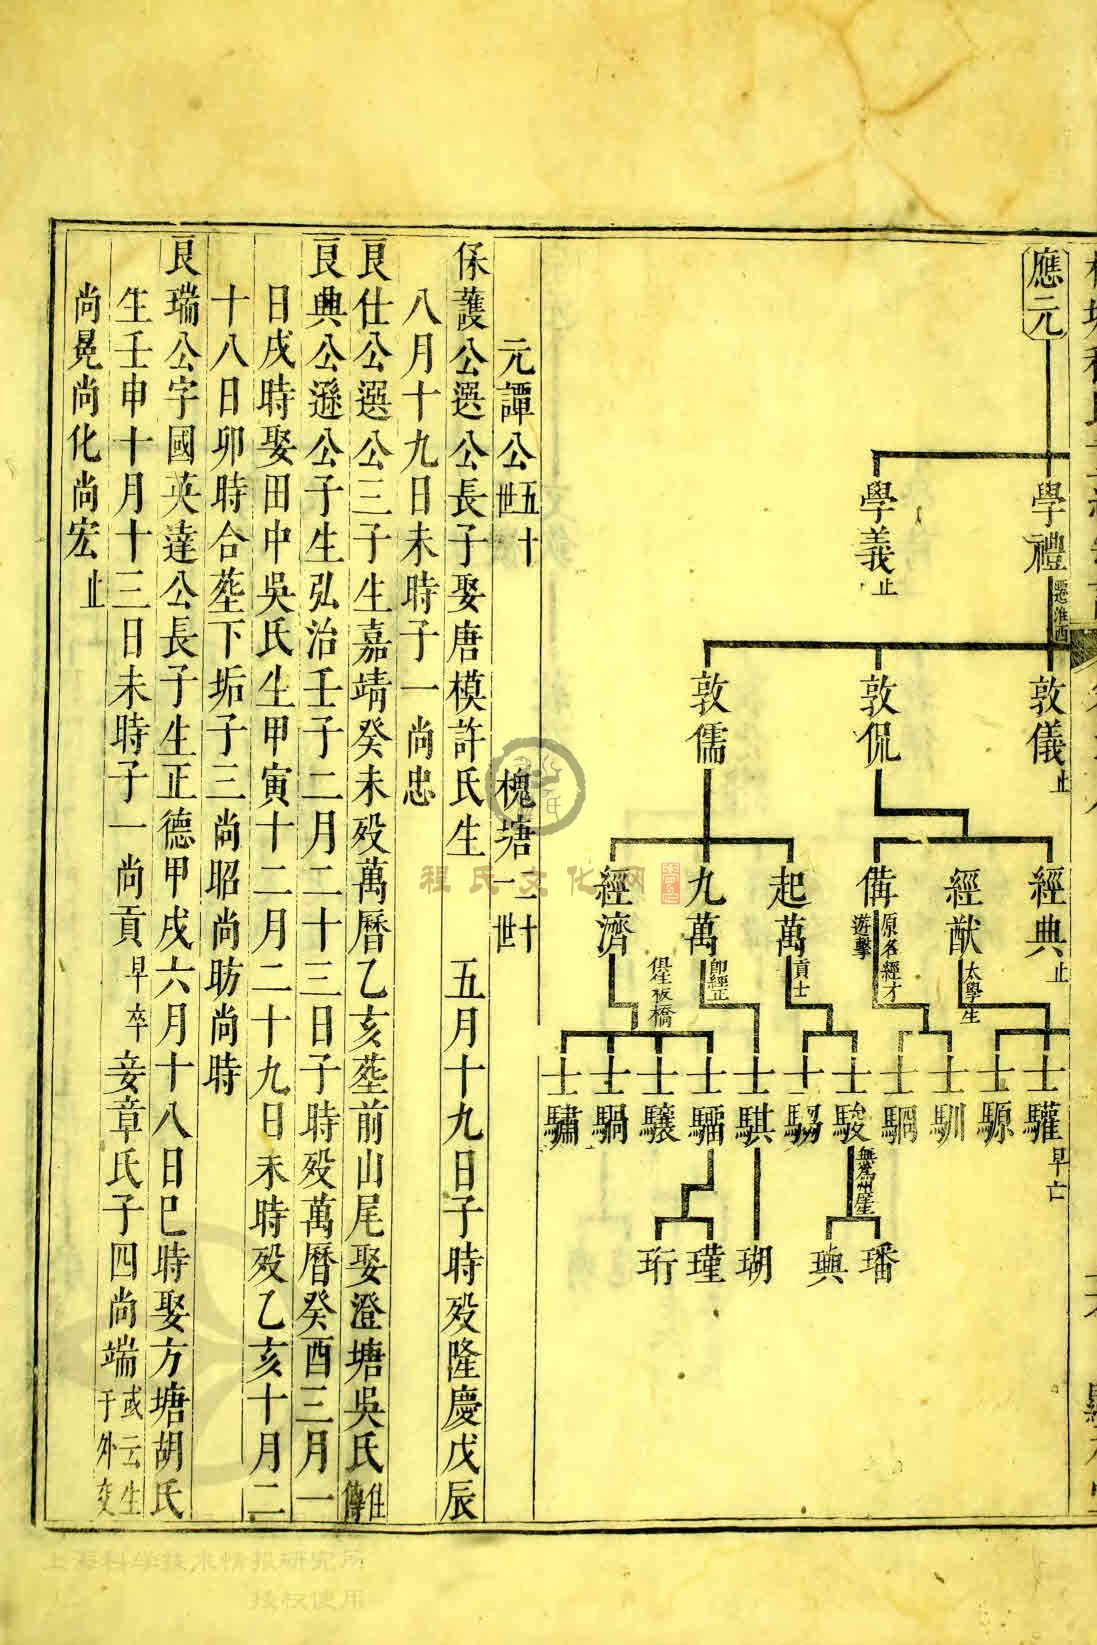 應元
學禮 遷淮西
學義 止
敦儀 止
敦侃
敦儒
經典 止
經猷 太學生
備 原名經才 遊擊
起萬 貢士
九萬 即經正
經濟
俱住板橋
士驩 早亡
士騵
士馴
士駉
士駿 無為州住
士騶
士騏
士騮
士驤
士騧
士驌
璠
璵
瑚
瑾
珩
元譚公五十世 槐塘十二世
保護公選公長子娶唐模許氏生 五月十九日子時歿隆慶戊辰
八月十九日未時子一尚忠
良仕公選公三子生嘉靖癸未歿萬曆乙亥塟前山尾娶澄塘吳氏
良典公遜公子生弘治壬子二月二十三日子時歿萬曆癸酉三月一
日戌時娶田中吳氏生甲寅十二月二十九日未時歿乙亥十月二
十八日卯時合塟下垢子三尚昭尚昉尚時
良瑞公字國英達公長子生正德甲戌六月十八日巳時娶方塘胡氏
生壬申十月十三日未時子一尚貢早卒妾章氏子四尚端或云生于外
尚晃尚化尚宏止
程氏文化网
上海科学技术情报研究所
授权使用